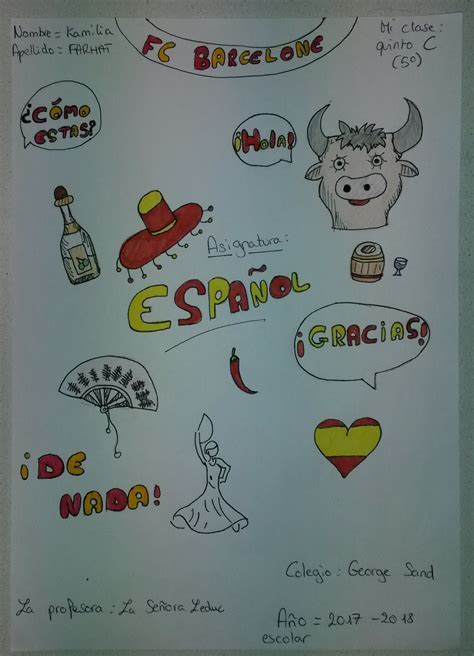 Nombre = Kamilia
Apellido = FARHAT
FC BARCELONE
Mi clase:
quinto C
(5º)
¿CÓMO
ESTAS?
¡HOLA!
Asignatura:
ESPAÑOL
¡GRACIAS!
¡DE
NADA!
Colegio: George Sand
La profesora: La Señora Leduc
Año = 2017 - 2018
escolar